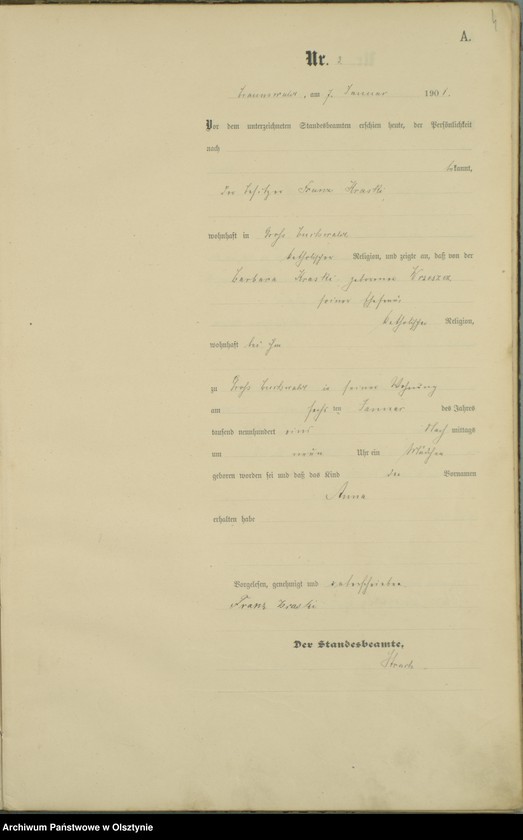 4
A.
Nr. 2
Braunswalde, am 7. Januar 1901.
Vor dem unterzeichneten Standesbeamten erschien heute, der Persönlichkeit
nach
bekannt,
der Besitzer Franz
wohnhaft in Groß Buchwalde
katholischer Religion, und zeigte an, daß von der
Barbara geborenen
seiner Ehefrau
katholischer Religion,
wohnhaft bei ihm
zu Groß Buchwalde in seiner Wohnung
am sechsten Januar des Jahres
tausend neunhundert eins Nach mittags
um neun Uhr ein Mädchen
geboren worden sei und daß das Kind den Vornamen
Anna
erhalten habe
Vorgelesen, genehmigt und unterschrieben
Franz
Der Standesbeamte.
Archiwum Państwowe w Olsztynie